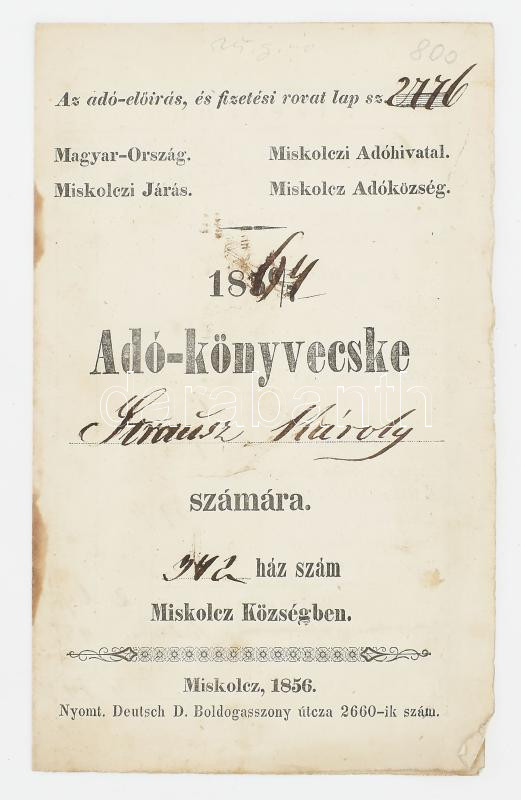 800
Az adó-előirás, és fizetési rovat lap sz. 2776
Magyar-Ország. Miskolczi Adóhivatal.
Miskolczi Járás. Miskolcz Adóközség.
1864
Adó-könyvecske
darabanth
Strausz Károly
számára.
342 ház szám
Miskolcz Községben.
Miskolcz, 1856.
Nyomt. Deutsch D. Boldogasszony útcza 2660-ik szám.